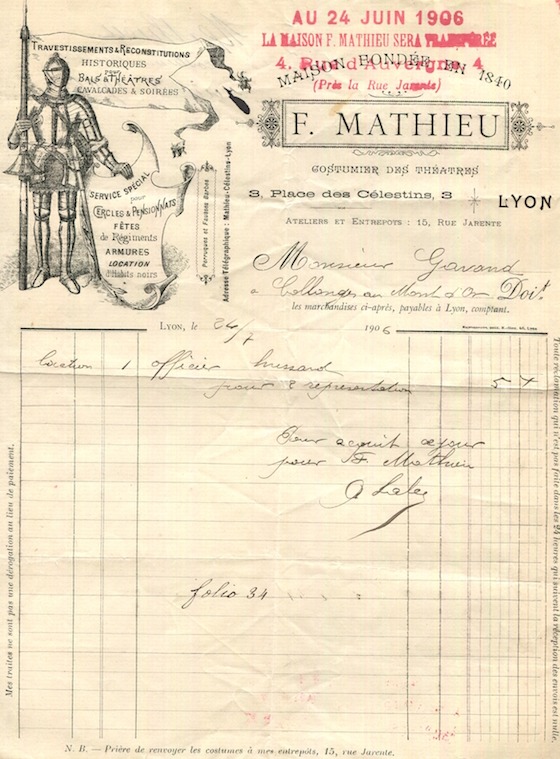 AU 24 JUIN 1906
LA MAISON F. MATHIEU SERA TRANSFÉRÉE
4, Rue d'Auvergne, 4
(Près la Rue Jarente)
MAISON FONDÉE EN 1840
F. MATHIEU
COSTUMIER DES THÉATRES
3, Place des Célestins, 3
LYON
ATELIERS ET ENTREPOTS : 15, RUE JARENTE
TRAVESTISSEMENTS & RECONSTITUTIONS
HISTORIQUES
POUR
BALS & THÉATRES
CAVALCADES & SOIRÉES
SERVICE SPÉCIAL
POUR
CERCLES & PENSIONNATS
FÊTES
de Régiments
ARMURES
LOCATION
d'Habits noirs
Perruques et Fausses Barbes
Adresse Télégraphique : Mathieu-Célestins-Lyon
Monsieur Gavand
à Collonges au Mont d'Or Doit
les marchandises ci-après, payables à Lyon, comptant.
Lyon, le 24/7 1906
location 1 officier hussard
pour 2 representation 5 +
Pour acquit ce jour
pour F. Mathieu
folio 34
Mes traites ne sont pas une dérogation au lieu de paiement.
Toute réclamation qui n'est pas faite dans les 24 heures qui suivent la réception des envois est nulle.
N. B. — Prière de renvoyer les costumes à mes entrepôts, 15, rue Jarente.